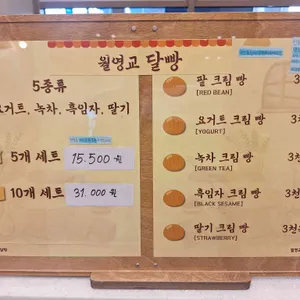 월영교 달빵
5종류
요거트, 녹차, 흑임자, 딸기
5개 세트 15.500 원
10개 세트 31.000 원
팥 크림 빵 3천
[RED BEAN]
요거트 크림 빵 3천
[YOGURT]
녹차 크림 빵 3천
[GREEN TEA]
흑임자 크림 빵 3천
[BLACK SESAME]
딸기 크림 빵 3천원
[STRAWBERRY]